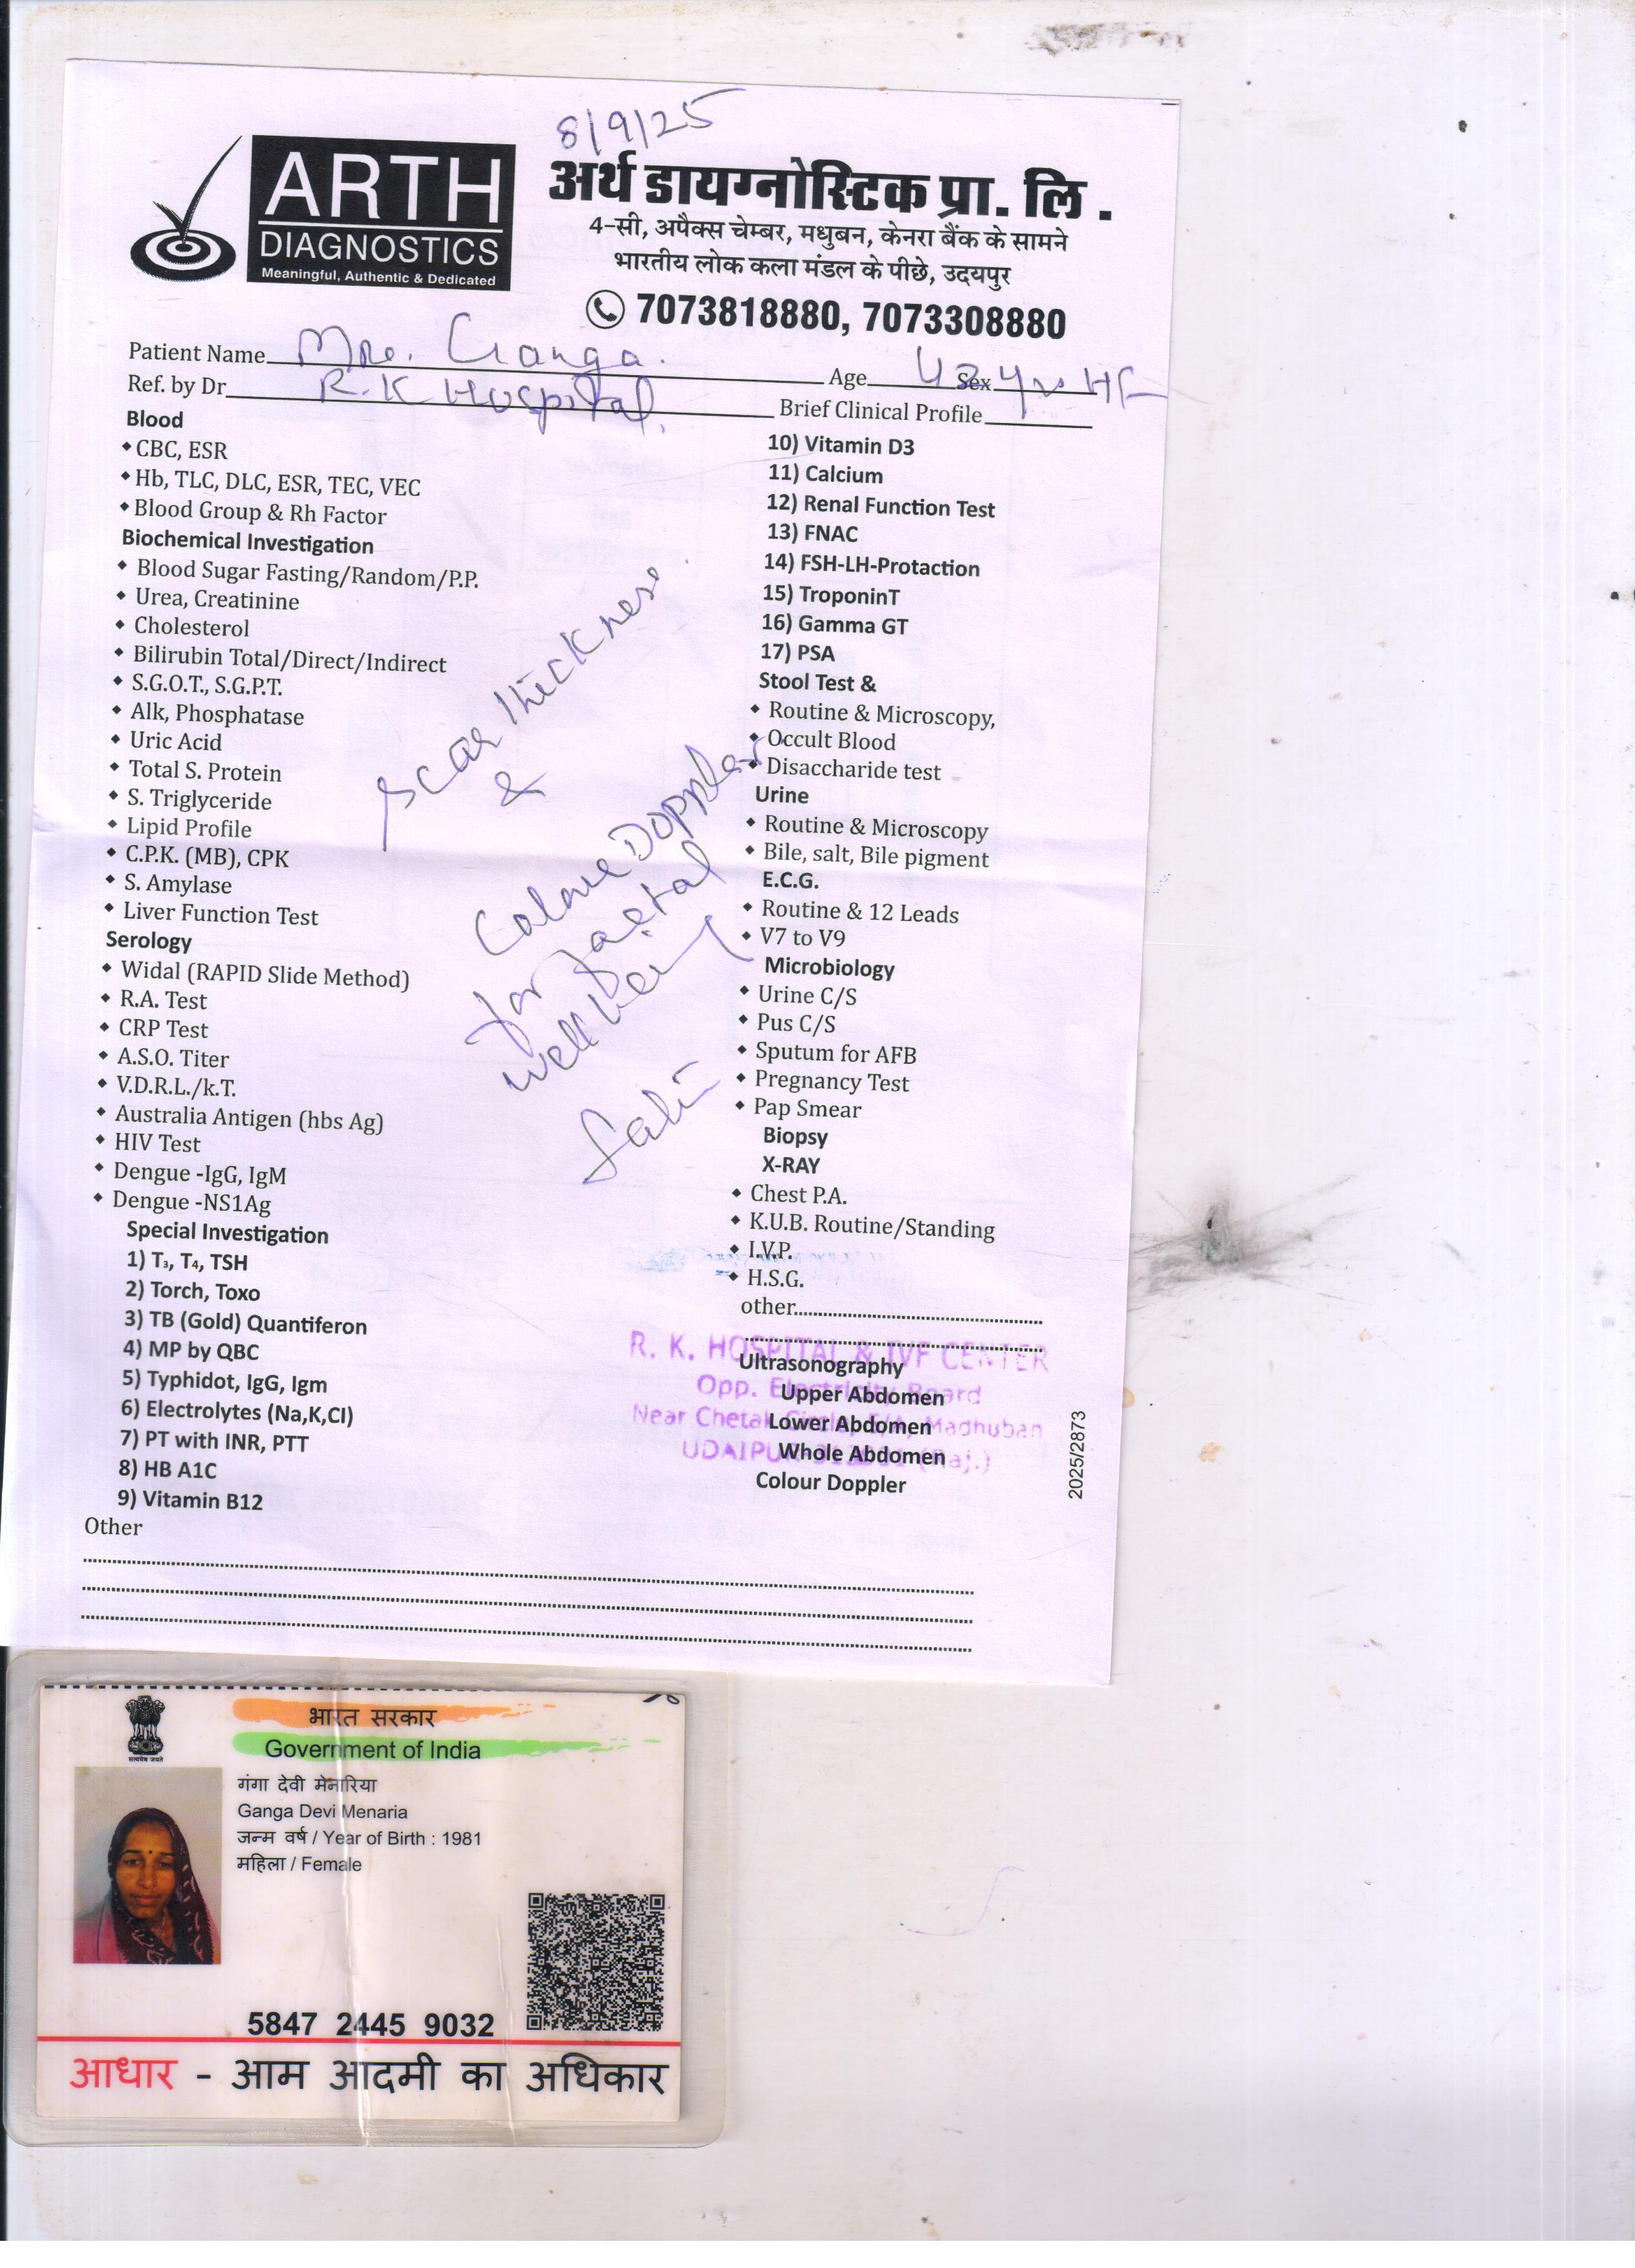 8/9/25
ARTH
DIAGNOSTICS
Meaningful, Authentic & Dedicated
अर्थ डायग्नोस्टिक प्रा. लि .
4-सी, अपैक्स चेम्बर, मधुबन, केनरा बैंक के सामने
भारतीय लोक कला मंडल के पीछे, उदयपुर
7073818880, 7073308880
Patient Name Mrs. Ganga. Age Sex
Ref. by Dr R.K Hospital. Brief Clinical Profile
Blood
CBC, ESR
Hb, TLC, DLC, ESR, TEC, VEC
Blood Group & Rh Factor
Biochemical Investigation
Blood Sugar Fasting/Random/P.P.
Urea, Creatinine
Cholesterol
Bilirubin Total/Direct/Indirect
S.G.O.T., S.G.P.T.
Alk, Phosphatase
Uric Acid
Total S. Protein
S. Triglyceride
Lipid Profile
C.P.K. (MB), CPK
S. Amylase
Liver Function Test
Serology
Widal (RAPID Slide Method)
R.A. Test
CRP Test
A.S.O. Titer
V.D.R.L./k.T.
Australia Antigen (hbs Ag)
HIV Test
Dengue -IgG, IgM
Dengue -NS1Ag
Special Investigation
1) T₃, T₄, TSH
2) Torch, Toxo
3) TB (Gold) Quantiferon
4) MP by QBC
5) Typhidot, IgG, Igm
6) Electrolytes (Na,K,Cl)
7) PT with INR, PTT
8) HB A1C
9) Vitamin B12
Other
scar thickness.
&
Colour Doppler
for faetal
well being
10) Vitamin D3
11) Calcium
12) Renal Function Test
13) FNAC
14) FSH-LH-Protaction
15) TroponinT
16) Gamma GT
17) PSA
Stool Test &
Routine & Microscopy,
Occult Blood
Disaccharide test
Urine
Routine & Microscopy
Bile, salt, Bile pigment
E.C.G.
Routine & 12 Leads
V7 to V9
Microbiology
Urine C/S
Pus C/S
Sputum for AFB
Pregnancy Test
Pap Smear
Biopsy
X-RAY
Chest P.A.
K.U.B. Routine/Standing
I.V.P.
H.S.G.
other
Ultrasonography
Upper Abdomen
Lower Abdomen
Whole Abdomen
Colour Doppler
R. K. HOSPITAL & IVF CENTER
Opp. Electricity Board
Near Chetak Circle, Madhuban
UDAIPUR (Raj.)
2025/2873
भारत सरकार
Government of India
सत्यमेव जयते
गंगा देवी मेनारिया
Ganga Devi Menaria
जन्म वर्ष / Year of Birth : 1981
महिला / Female
5847 2445 9032
आधार - आम आदमी का अधिकार